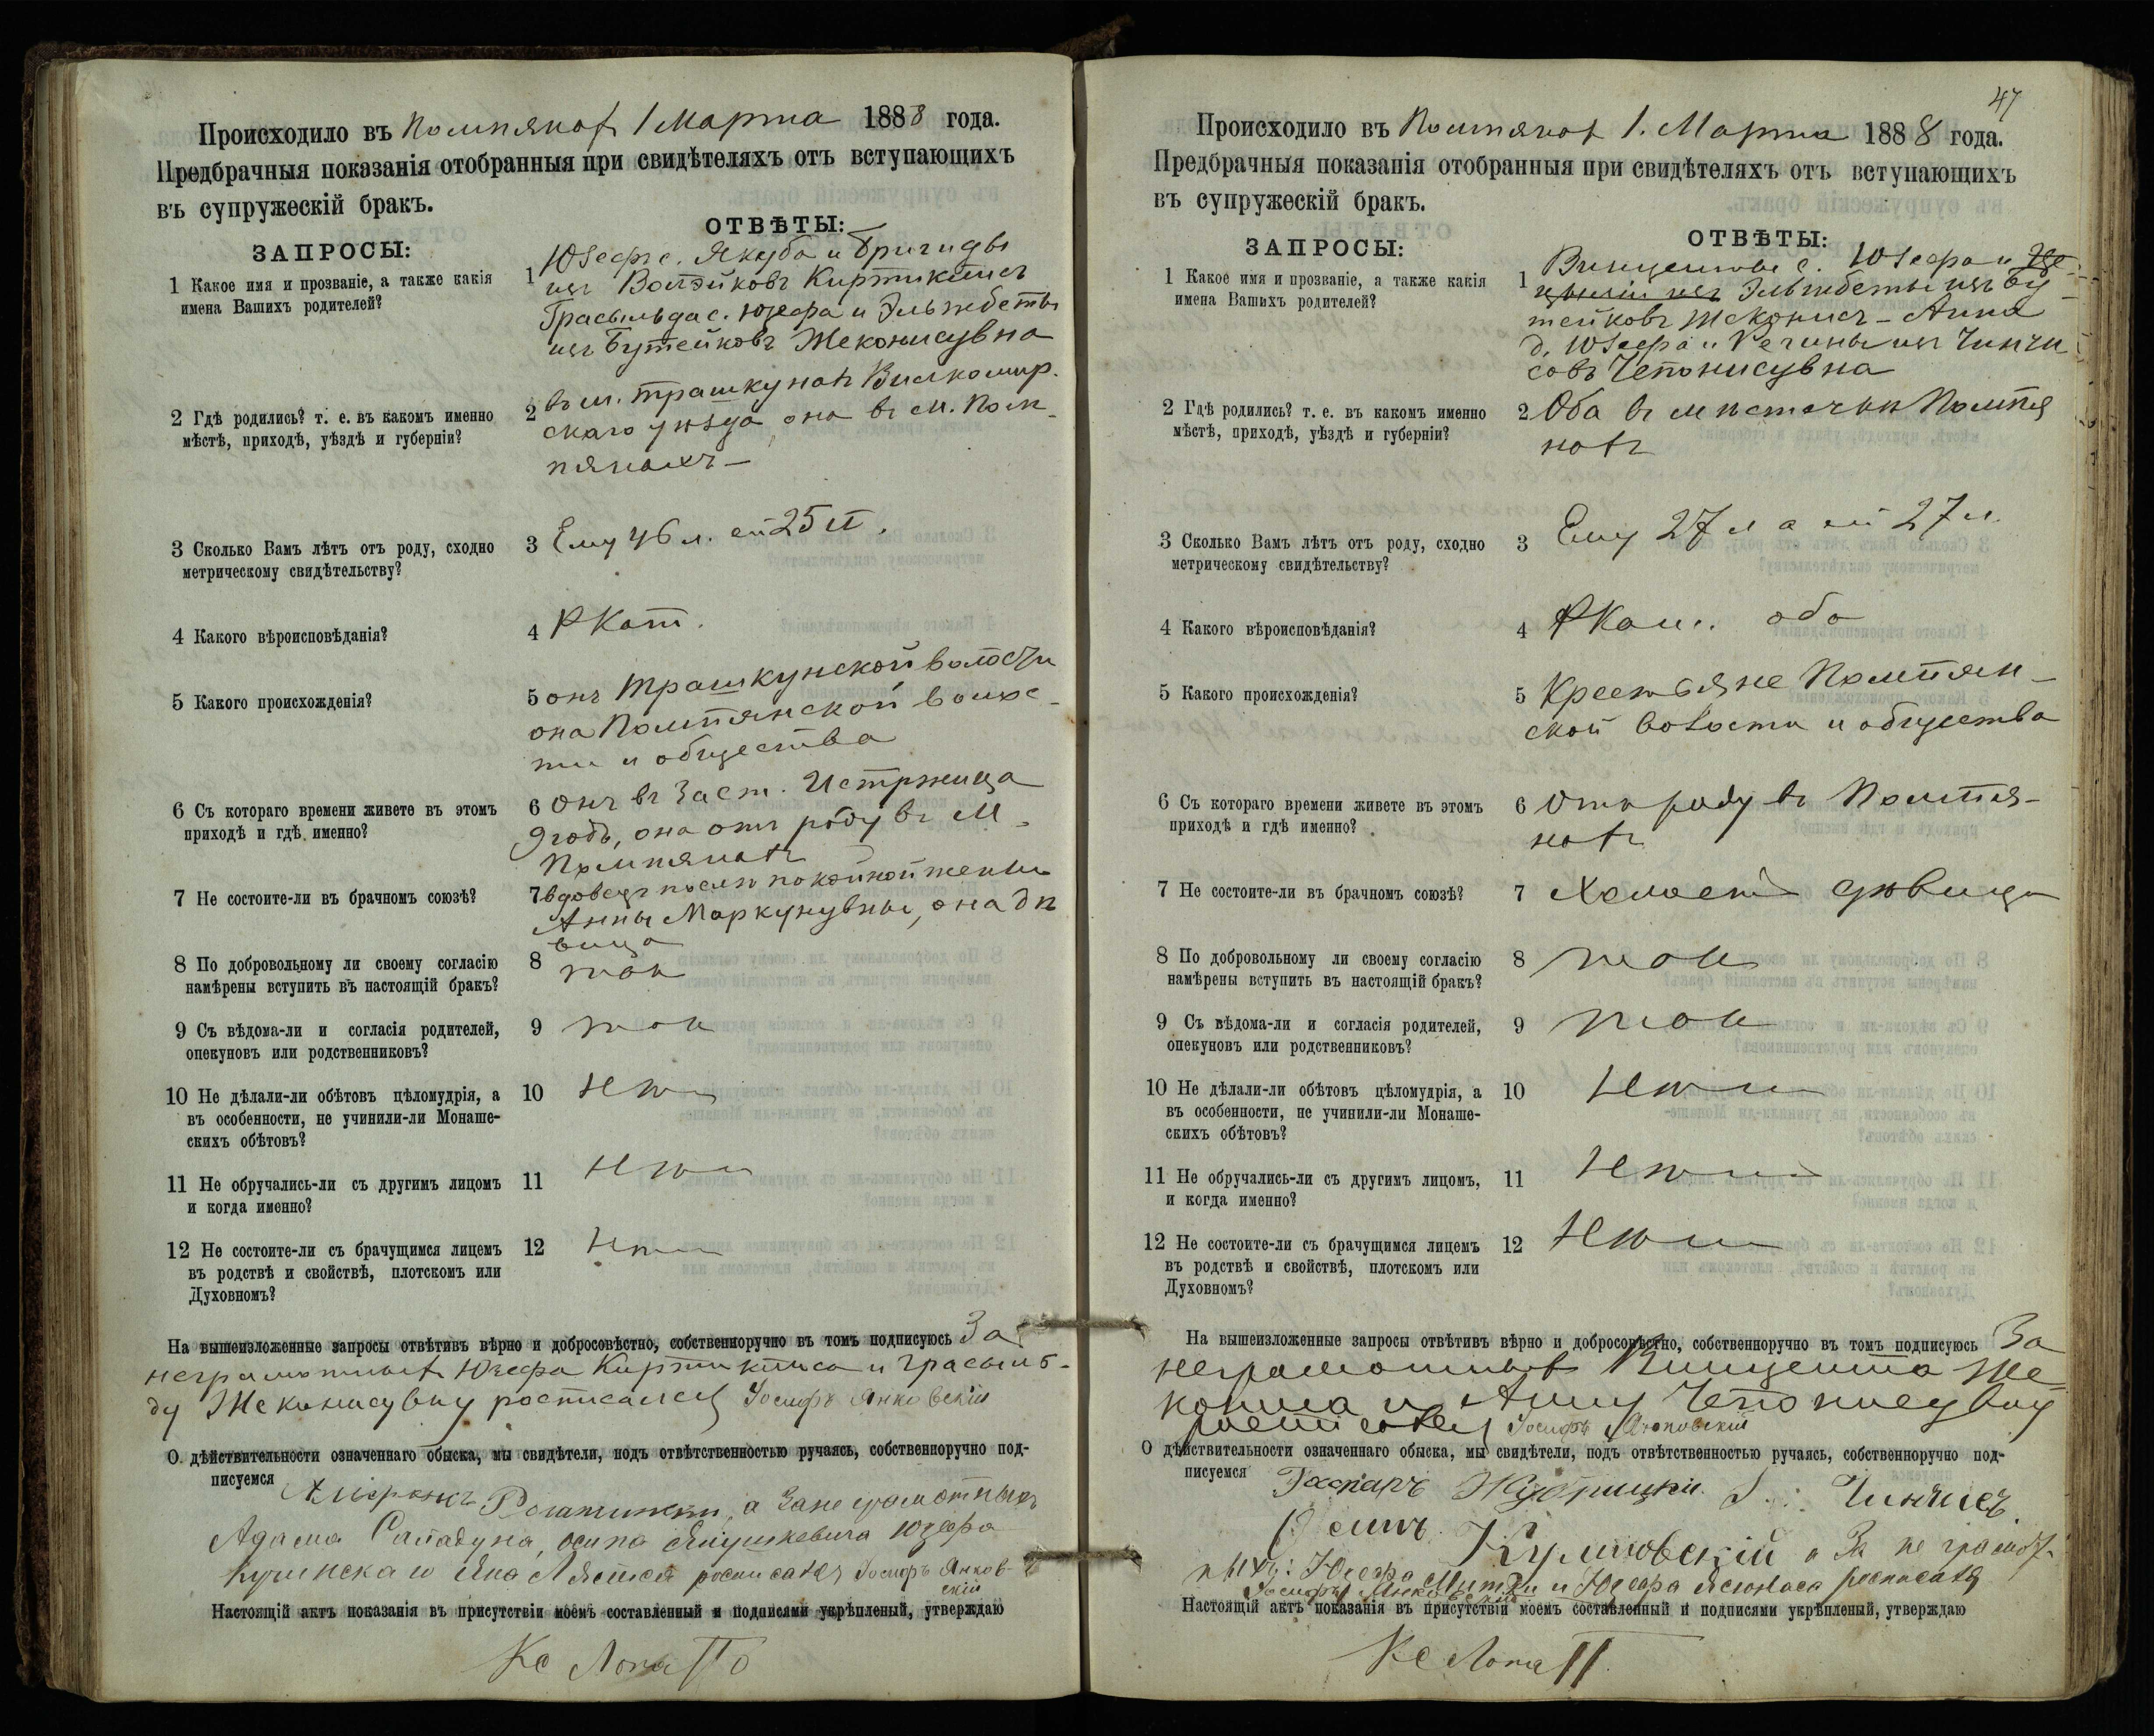 Происходило въ Помпянах 1 Марта 1888 года.
Предбрачныя показанія отобранныя при свидѣтеляхъ отъ вступающихъ
въ супружескій бракъ.
ЗАПРОСЫ:
ОТВѢТЫ:
1 Какое имя и прозваніе, а также какія
имена Вашихъ родителей?
1 Юзефъ с. Якуба и Бригиды
изъ Киртиклисъ
Грасыльда с. Юзефа и Эльжбеты
изъ Бутейковъ Жеконисувна
2 Гдѣ родились? т. е. въ какомъ именно
мѣстѣ, приходѣ, уѣздѣ и губерніи?
2 въ м. Трашкунахъ Вилкомир.
скаго уѣзда, она въ м. Пом-
пянахъ —
3 Сколько Вамъ лѣтъ отъ роду, сходно
метрическому свидѣтельству?
3 Ему 46 л. ей 25 л.
4 Какого вѣроисповѣданія?
4 РКат.
5 Какого происхожденія?
5 онъ Трашкунской волости
она Помпянской волос-
ти и общества
6 Съ котораго времени живете въ этомъ
приходѣ и гдѣ именно?
6 Онъ въ Заст. Истржица
9 годъ, она отъ роду въ М.
Помпянахъ
7 Не состоите-ли въ брачномъ союзѣ?
7 вдовецъ послѣ покойной жены
Анны Маркунувны, она дѣ
вица
8 По добровольному ли своему согласію
намѣрены вступить въ настоящій бракъ?
8 так
9 Съ вѣдома-ли и согласія родителей,
опекуновъ или родственниковъ?
9 так
10 Не дѣлали-ли обѣтовъ цѣломудрія, а
въ особенности, не учинили-ли Монаше-
скихъ обѣтовъ?
10 Нѣт
11 Не обручались-ли съ другимъ лицомъ
и когда именно?
11 Нѣт
12 Не состоите-ли съ брачущимся лицемъ
въ родствѣ и свойствѣ, плотскомъ или
Духовномъ?
12 Нѣт
На вышеизложенные запросы отвѣтивъ вѣрно и добросовѣстно, собственноручно въ томъ подписуюсь За
неграмотныхъ Юзефа Киртиклиса и Грасыль-
ду Жеконисувну росписался Іосифъ Янковскій
О дѣйствительности означеннаго обыска, мы свидѣтели, подъ отвѣтственностью ручаясь, собственноручно под-
писуемся а За неграмотныхъ
Адама Осипа Янушкевича Юзефа
Яна росписался Іосифъ Янков-
скій
Настоящій актъ показанія въ присутствіи моемъ составленный и подписями укрѣпленый, утверждаю
Кс Лопатто
47
Происходило въ Помпянах 1. Марта 1888 года.
Предбрачныя показанія отобранныя при свидѣтеляхъ отъ вступающихъ
въ супружескій бракъ.
ЗАПРОСЫ:
ОТВѢТЫ:
1 Какое имя и прозваніе, а также какія
имена Вашихъ родителей?
1 с. Юзефа и
Эльжбеты изъ Бу-
тейковъ Жеконисъ — Анна
д. Юзефа и Регины изъ Чинчи
совъ Чепонисувна
2 Гдѣ родились? т. е. въ какомъ именно
мѣстѣ, приходѣ, уѣздѣ и губерніи?
2 Оба въ мѣстечкѣ Помпя
нахъ
3 Сколько Вамъ лѣтъ отъ роду, сходно
метрическому свидѣтельству?
3 Ему 27 л а ей 27 л.
4 Какого вѣроисповѣданія?
4 РКат. оба
5 Какого происхожденія?
5 Крестьяне Помпян-
ской волости и общества
6 Съ котораго времени живете въ этомъ
приходѣ и гдѣ именно?
6 Отъ роду въ Помпя-
нахъ
7 Не состоите-ли въ брачномъ союзѣ?
7 Холостъ дѣвица
8 По добровольному ли своему согласію
намѣрены вступить въ настоящій бракъ?
8 так
9 Съ вѣдома-ли и согласія родителей,
опекуновъ или родственниковъ?
9 так
10 Не дѣлали-ли обѣтовъ цѣломудрія, а
въ особенности, не учинили-ли Монаше-
скихъ обѣтовъ?
10 Нѣт
11 Не обручались-ли съ другимъ лицомъ,
и когда именно?
11 Нѣт
12 Не состоите-ли съ брачущимся лицемъ
въ родствѣ и свойствѣ, плотскомъ или
Духовномъ?
12 Нѣт
На вышеизложенные запросы отвѣтивъ вѣрно и добросовѣстно, собственноручно въ томъ подписуюсь За
неграмотныхъ Винцента Же
кониса и Анну Чепонисувну
росписался Іосифъ Янковскій
О дѣйствительности означеннаго обыска, мы свидѣтели, подъ отвѣтственностью ручаясь, собственноручно под-
писуемся Гаспаръ Чинчисъ
Осипъ а За не грамот-
ныхъ: Юзефа и Юзефа росписался
Іосифъ Янковскій
Настоящій актъ показанія въ присутствіи моемъ составленный и подписями укрѣпленый, утверждаю
Кс Лопатт